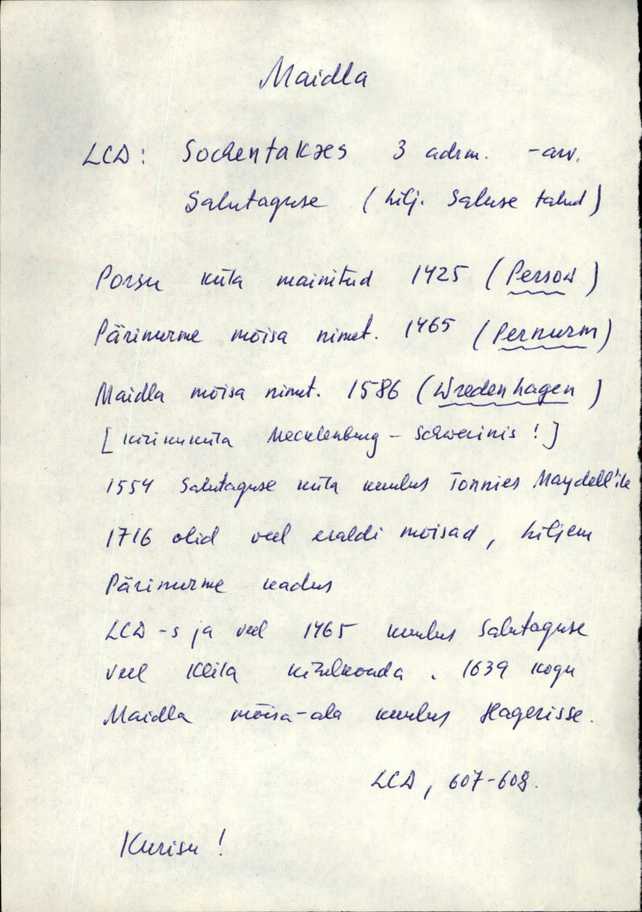 Maidla
LCD: Sochentakæs 3 adrm. - arv.
Salutaguse (hilj. Saluse talud)
Porsu küla mainitud 1425 (Persow)
Pärinurme mõisa nimet. 1465 (Pernurm)
Maidla mõisa nimet. 1586 (Wredenhagen)
[kirikuküla Mecklenburg - Schwerinis!]
1554 Salutaguse küla kuulus Tonnies Maydell'ile
1716 olid veel eraldi mõisad, hiljem
Pärinurme kadus
LCD-s ja veel 1465 kuulus Salutaguse
veel Keila kihelkonda. 1639 kogu
Maidla mõisa-ala kuulus Hagerisse.
LCD, 607-608.
Kurisu!